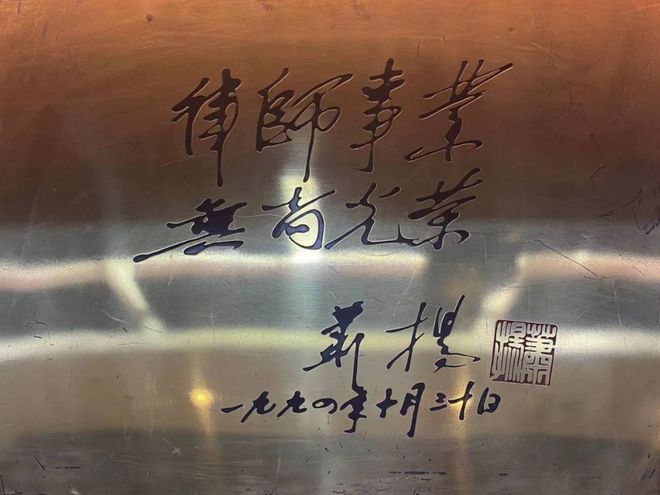 律師事業
無尚光荣
萧揚
蕭揚
一九九四年十月三十日